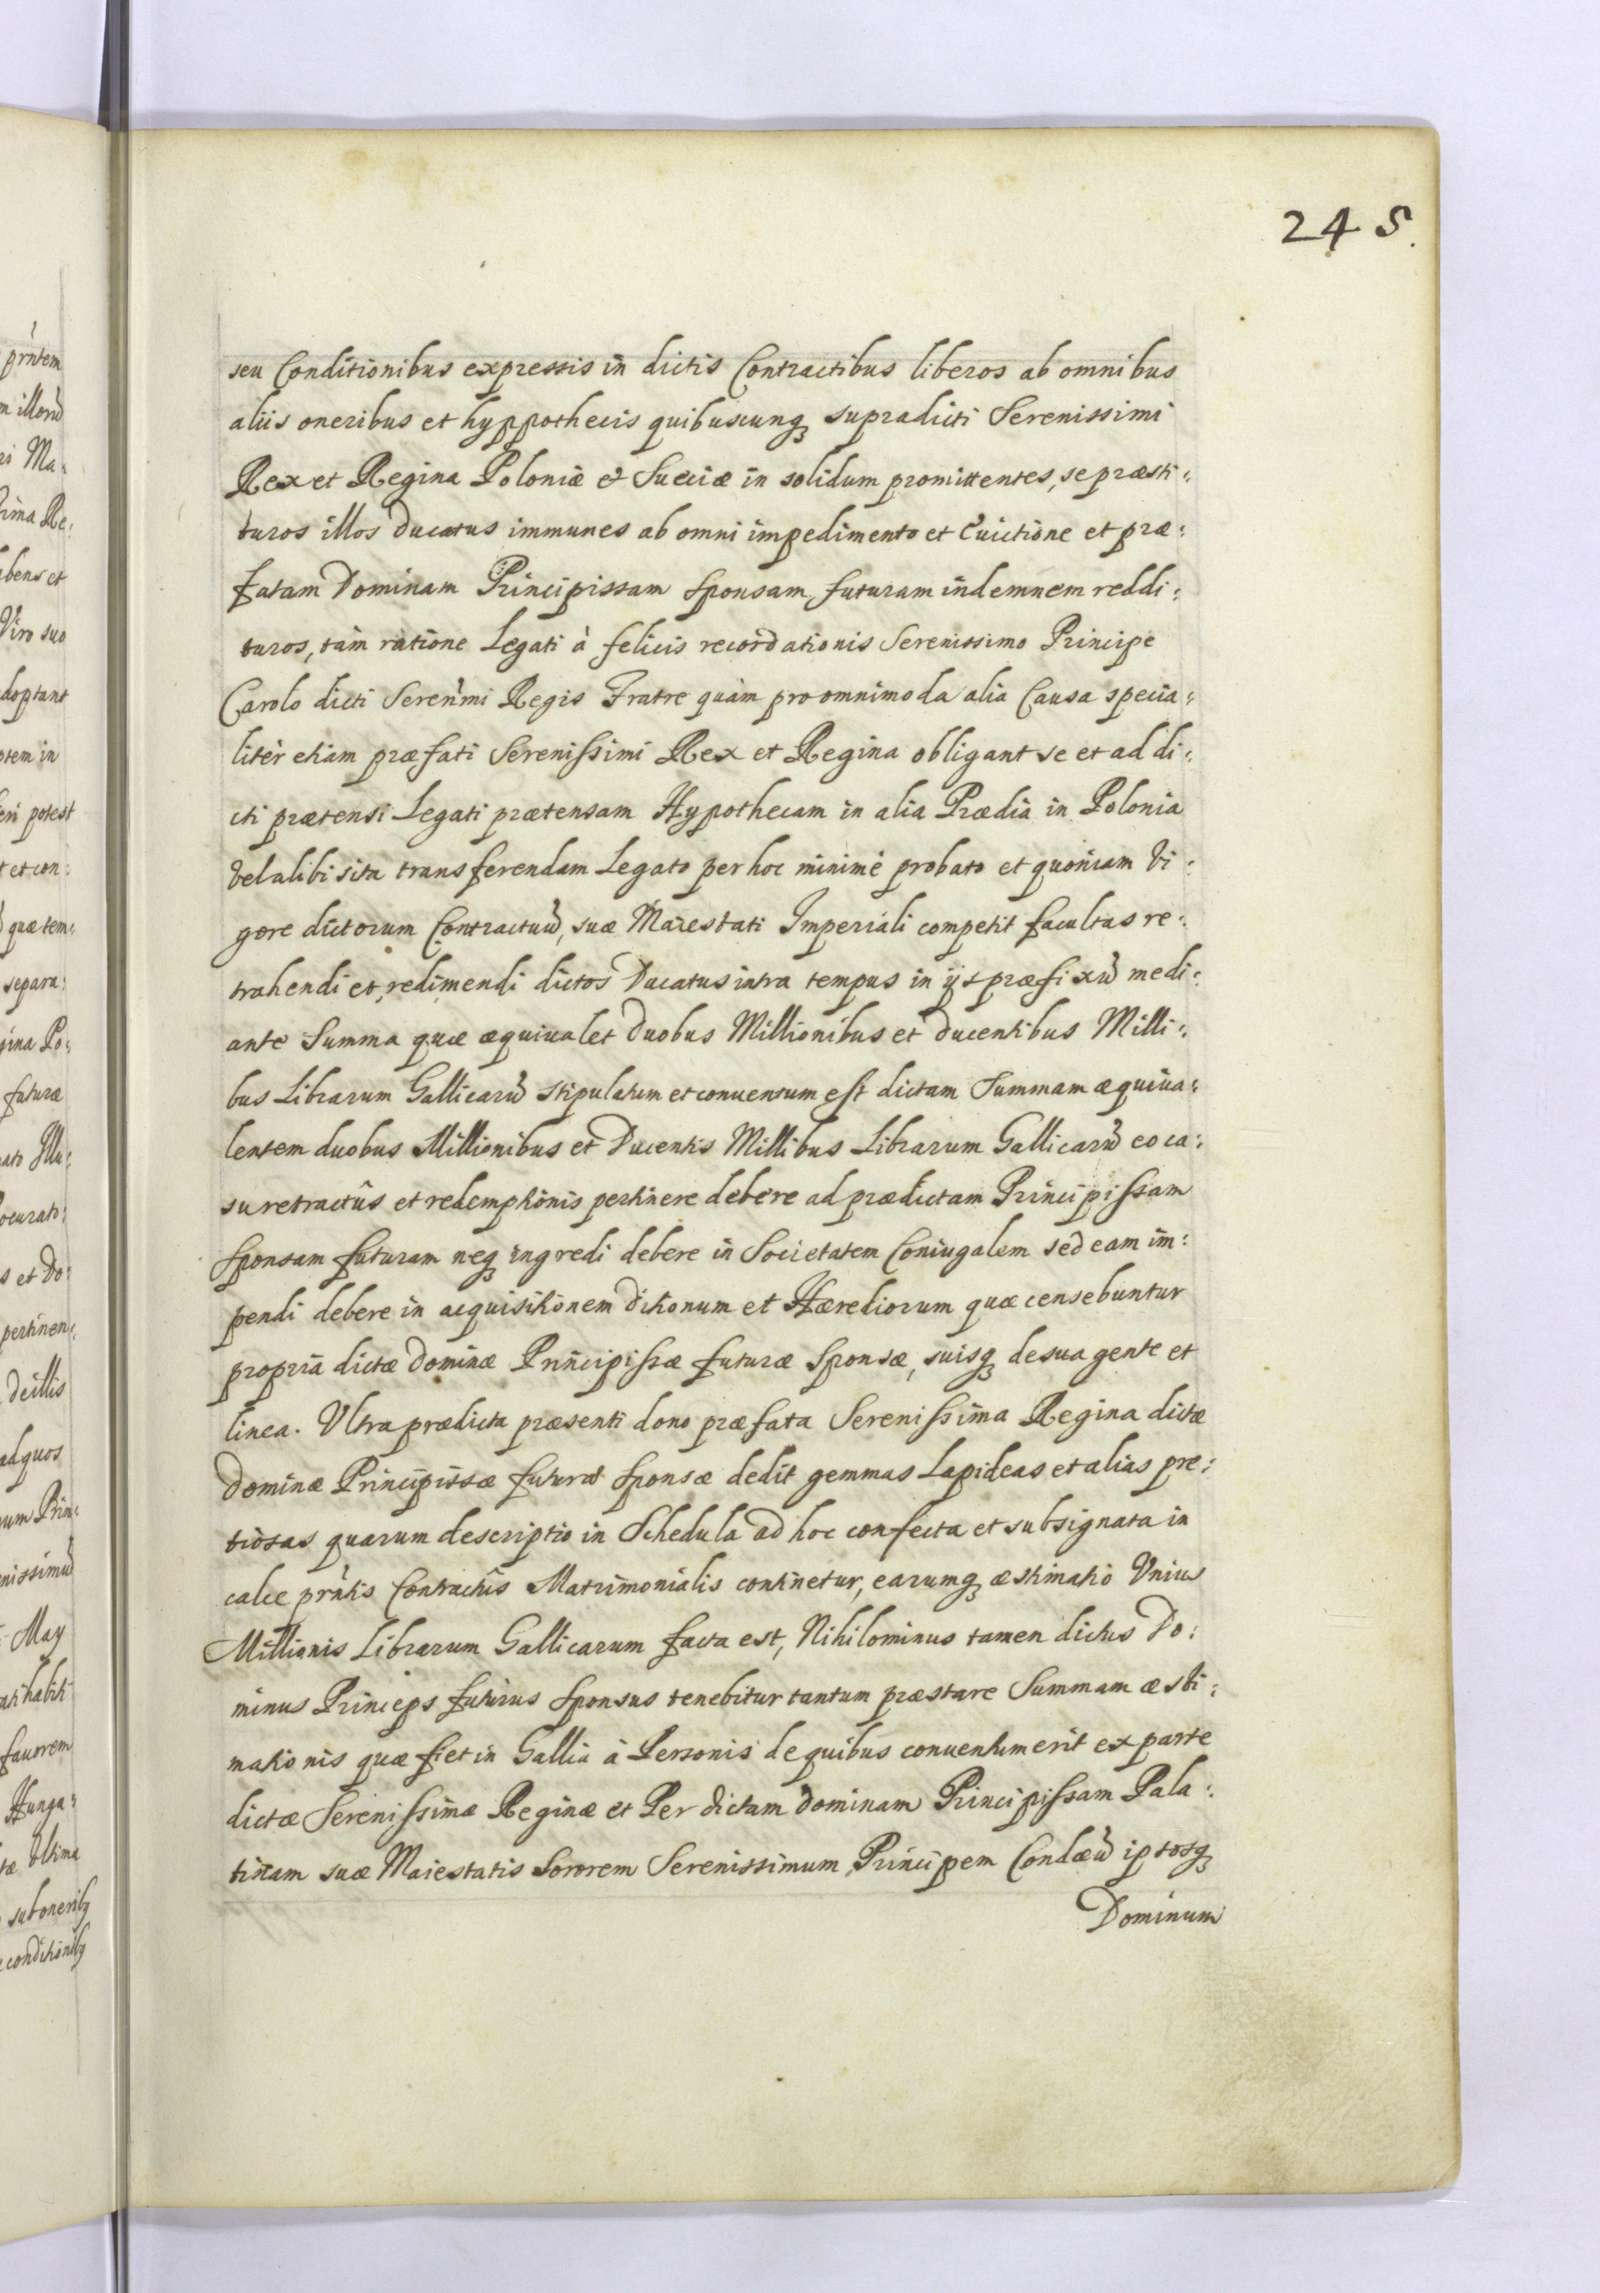 245.
seu Conditionibus expressis in dictis Contractibus liberos ab omnibus
aliis oneribus et hyppothecis quibuscunq3 supradicti Serenissimi
Rex et Regina Poloniæ & Sueciæ in solidum promittentes, se præsti:
turos illos ducatus immunes ab omni impedimento et Euictione et præ:
fatam Dominam Principissam Sponsam futuram indemnem reddi:
turos, tàm ratione Legati à felicis recordationis Serenissimo Principe
Carolo dicti Seren̄mi Regis Fratre quàm pro omnimoda alia Causa specia:
litèr etiam præfati Serenissimi Rex et Regina obligant se et ad di:
cti prætensi Legati prætensam Hypothecam in alia Prædia in Polonia
vel alibi sita transferendam Legato per hoc minimè probato et quoniam Vi:
gore dictorum Contractuū, suæ Maiestati Imperiali competit facultas re:
trahendi et redimendi dictos Ducatus intra tempus in ijs præfixū medi:
ante Summa quæ æquiualet duobus Millionibus et ducentibus Milli:
bus Librarum Gallicarū stipulatum et conuentum est dictam Summam æquiua:
lentem duobus Millionibus et Ducentis Millibus Librarum Gallicarū eo ca:
su retractûs et redemptionis pertinere debere ad prædictam Principissam
Sponsam futuram neq3 ingredi debere in Societatem Coniugalem sed eam im:
pendi debere in acquisitionem ditionum et Hærediorum quæ censebuntur
propria dictæ Dominæ Principissæ futuræ Sponsæ, suisq3 de sua gente et
linea. Vltra prædicta præsenti dono præfata Serenissima Regina dictæ
Dominæ Principissæ futuræ Sponsæ dedit gemmas Lapideas et alias pre:
tiosas quarum descriptio in Schedula ad hoc confecta et subsignata in
calce pr̄ntis Contractûs Matrimonialis continetur, earumq3 æstimatio Vnius
Millionis Librarum Gallicarum facta est, Nihilominus tamen dictus Do:
minus Princeps futurus Sponsus tenebitur tantum præstare Summam æsti:
mationis quæ fiet in Gallia à Personis de quibus conuentum erit ex parte
dictæ Serenissimæ Reginæ et Per dictam Dominam Principissam Pala:
tinam suæ Maiestatis Sororem Serenissimum Principem Condæū ipsosq3
Dominum